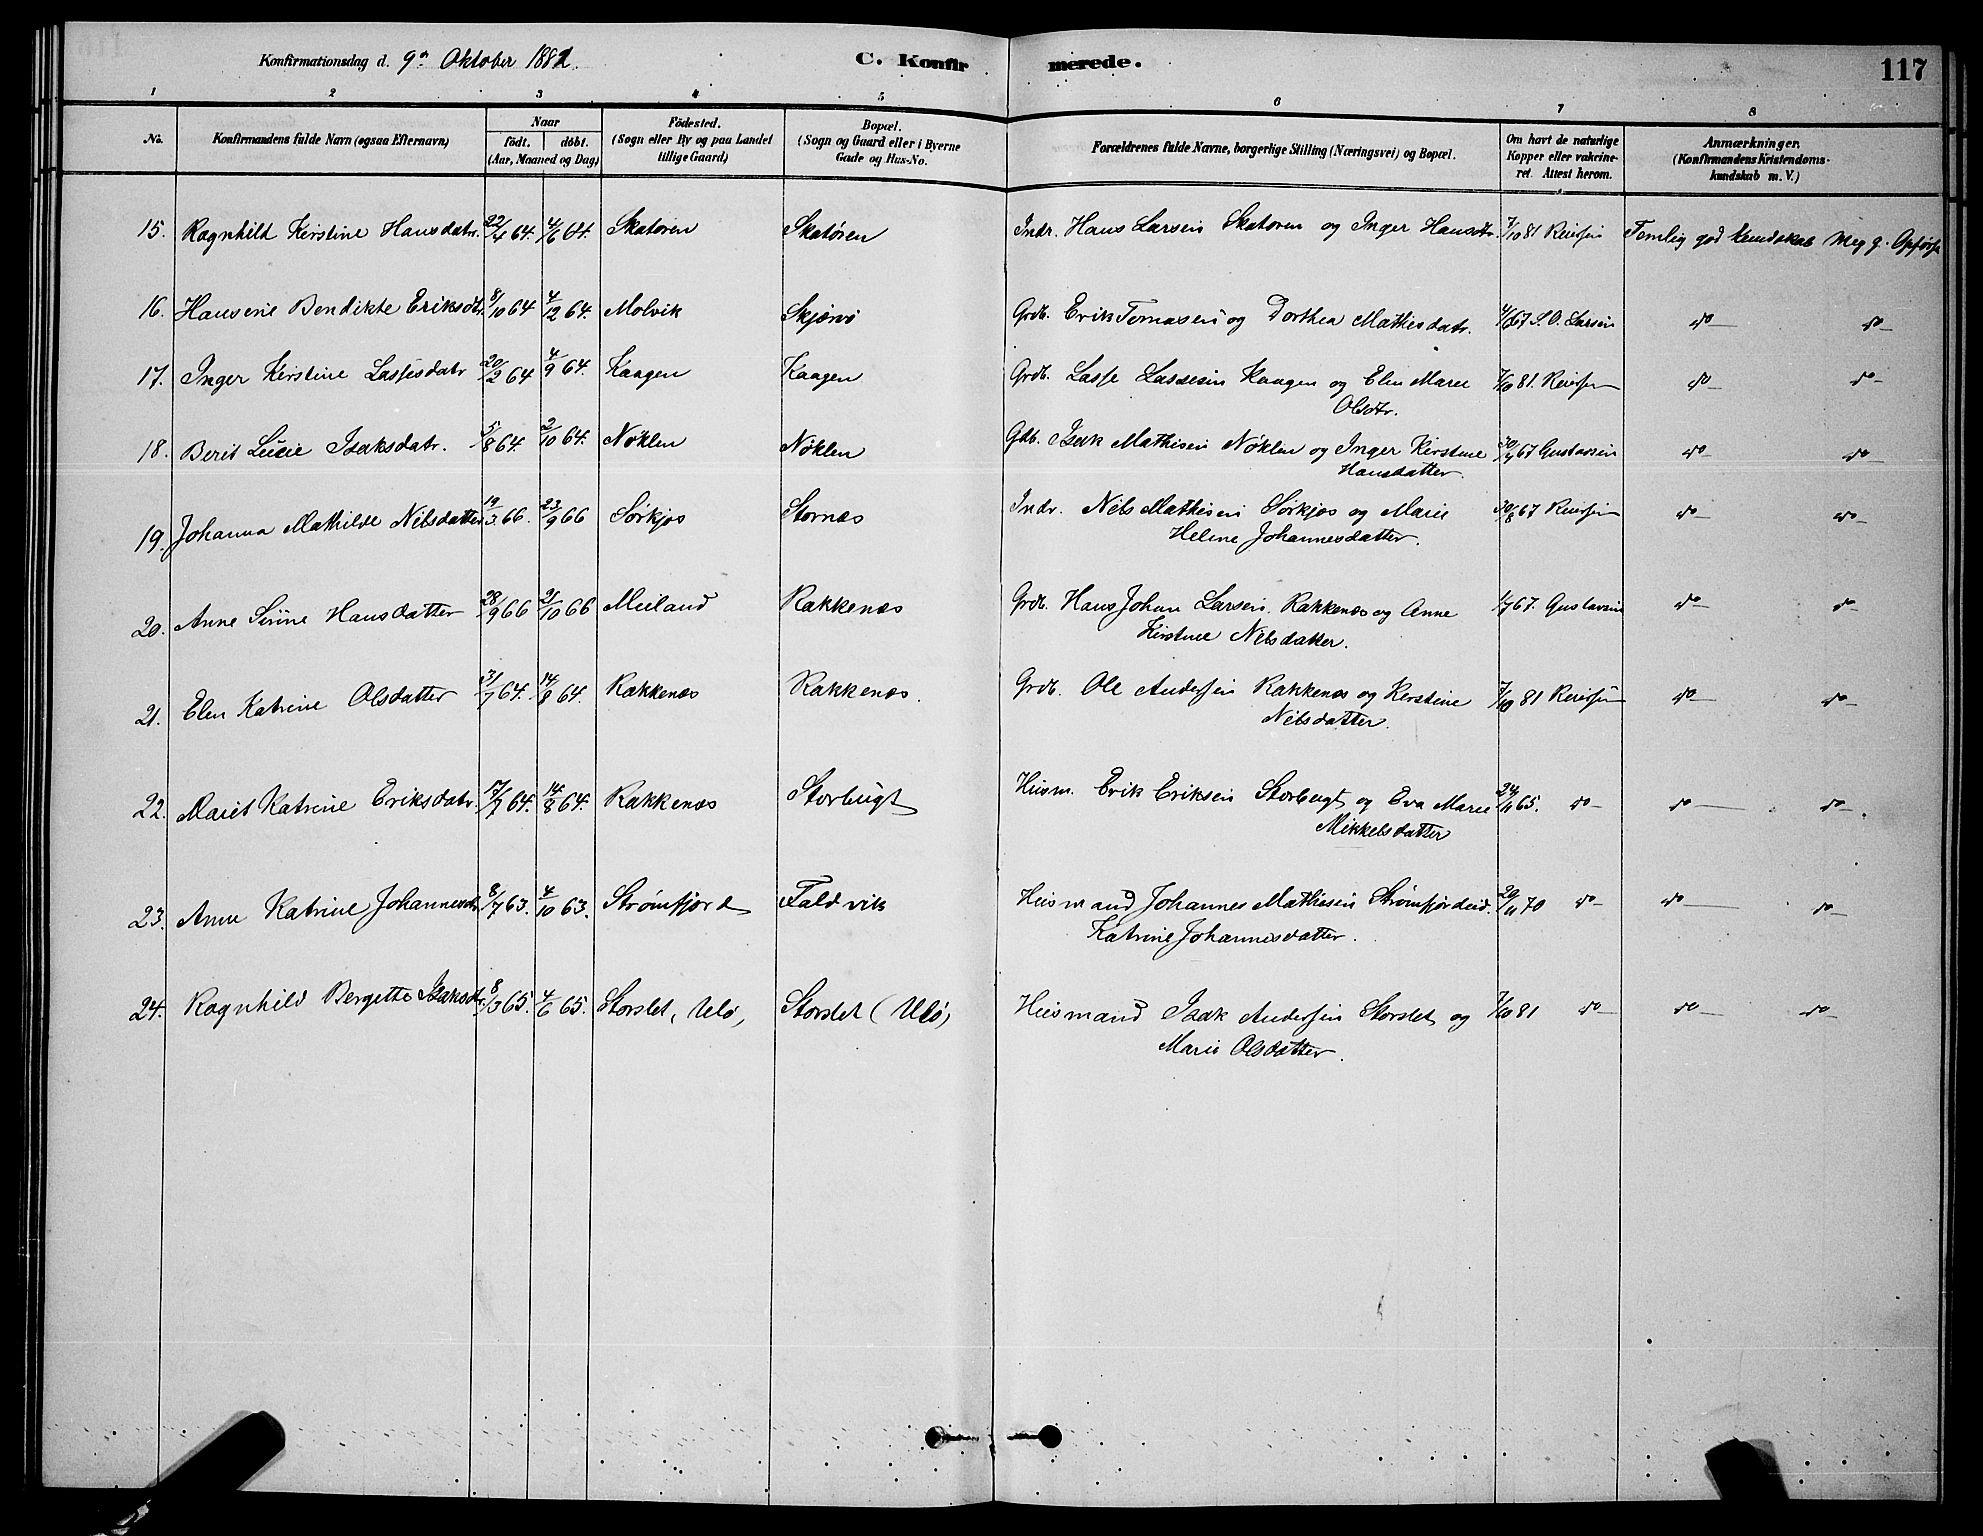 Konfirmationsdag d. 9de Oktober 1881. C. Konfirmerede. 117
1 2 3 4 5 6 7 8
No. Konfirmandens fulde Navn (ogsaa Efternavn) Naar födt. döbt. (Aar, Maaned og Dag) Födested. (Sogn eller By og paa Landet tillige Gaard) Bopæl. (Sogn og Gaard eller i Byerne Gade og Hus-No. Forældrenes fulde Navne, borgerlige Stilling (Næringsvei) og Bopæl. Om havt de naturlige Kopper eller vakcineret. Attest herom. Anmærkninger. (Konfirmandens Kristendomskundskab m. V.)
15. Ragnhild Kerstine Hansdatr. 22/4 64. 4/6 64. Skatøren Skatøren Indr. Hans Larsen Skatøren og Inger Hansdtr. 7/10 81 Reiersen Temlig god kundskab Meg g. Opførs
16. Hansine Bendikte Eriksdtr. 8/10 64 4/12 64. Molvik Skjærvø Grdb. Erik Tomasen og Dorthea Mathisdatr. 67 S. O. Larsen do do
17. Inger Kerstine Lassesdatr 20/2 64 4/9 64. Kaagen Kaagen Grdb. Lasse Lassesen Kaagen og Elen Marie
Olsdtr. 7/10 81. Reiersen do do
18. Berit Lucie Isaksdatr. 5/8 64. 2/10 64. Nøklen Nøklen Gdb. Isak Mathisen Nøklen og Inger Kerstine
Hansdatter. 67 Gustavsen do do
19. Johanna Mathilde Nilsdatter 19/3 66. 23/9 66 Sørkjos Stornæs Indr. Nils Mathisen Sørkjos og Marie
Helene Johannesdatter. 30/8 67 Reiersen do do
20. Anne Sirine Hansdatter 28/9 66 21/10 66 Meiland Rakkenæs Grdb. Hans Johan Larsen Rakkenæs og Anne
Kirstine Nilsdatter. 1/7 67. Gustavsen do do
21. Elen Katrine Olsdatter 31/7 64. 14/8 64. Rakkenæs Rakkenæs. Grdb. Ole Andersen Rakkenæs og Kerstine
Nilsdatter. 7/10 81 Reiersen do do
22. Marit Katrine Eriksdatr. 17/7 64. 14/8 64. Rakkenæs Storbugt Husm. Erik Eriksen Storbugt og Eva Marie
Mikkelsdatter 24/11 65. do do do
23. Anne Katrine Johannesdtr 8/7 63. 4/10 63. Strømfjord Taldvik Husmand Johannes Mathisen Strømfjordeid.
Katrine Johannesdatter. 20/11 70 do do do
24. Ragnhild Bergette Isaksdtr. 8/3 65. 4/6 65. Storslet, Ulø, Storslet (Ulø) Husmand Isak Andersen Storslet og
Marie Olsdatter. 7/10 81 do do do